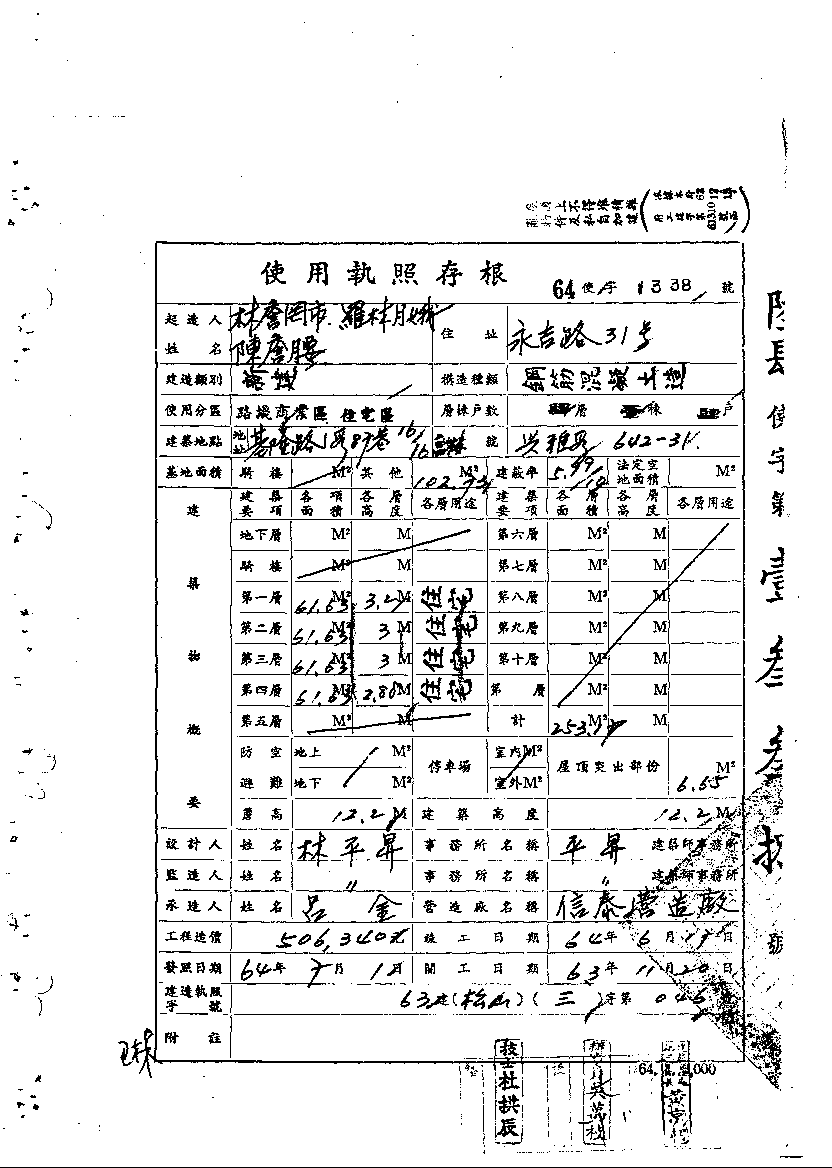 使用執照存根
64使字1338號
起造人姓名 林詹罔市 羅林月娥 陳詹腰 住址 永吉路31号
建造類別 構造種類 鋼筋混凝土造
使用分區 路線商業區 住宅區 層棟戶數 層 棟 戶
建築地點 地址 基隆路1段87巷 號 興雅段 642-31
基地面積 騎樓 M² 其他 102.94 M² 建蔽率 5.99/10 法定空地面積 M²
建築物概要 建築要項 各項面積 各層高度 各層用途 建築要項 各層面積 各層高度 各層用途
地下層 M² M 第六層 M² M
騎樓 M² M 第七層 M² M
第一層 61.63 M² 3.2 M 住宅 第八層 M² M
第二層 61.63 M² 3 M 住宅 第九層 M² M
第三層 61.63 M² 3 M 住宅 第十層 M² M
第四層 61.63 M² 2.88 M 住宅 第 層 M² M
第五層 M² M 計 253.17 M² M
防空避難 地上 M² 地下 M² 停車場 室內M² 室外M² 屋頂突出部份 6.65 M²
簷高 12.2 M 建築高度 12.2 M
設計人 姓名 林平昇 事務所名稱 平昇 建築師事務所
監造人 姓名 〃 事務所名稱 〃 建築師事務所
承造人 姓名 呂金 營造廠名稱 信泰營造廠
工程造價 506,340元 竣工日期 64年6月17日
發照日期 64年7月1日 開工日期 63年11月20日
建造執照字號 63建(松山)(三)字第046號
附註
技士杜拱辰
64. ,000
使字第壹叁叁捌號